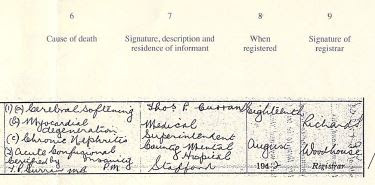 6 7 8 9
Cause of death Signature, description and residence of informant When registered Signature of registrar
(1)(a) Cerebral Softening
(b) Myocardial
degeneration
(c) Chronic Nephritis
(2) Acute Confusional
Insanity
Certified by
T.P. Curran M.D P.M.
Thos P. Curran
Medical
Superintendent
County Mental
Hospital
Stafford
Eighteenth
August
194
Richard
Woodhouse
Registrar